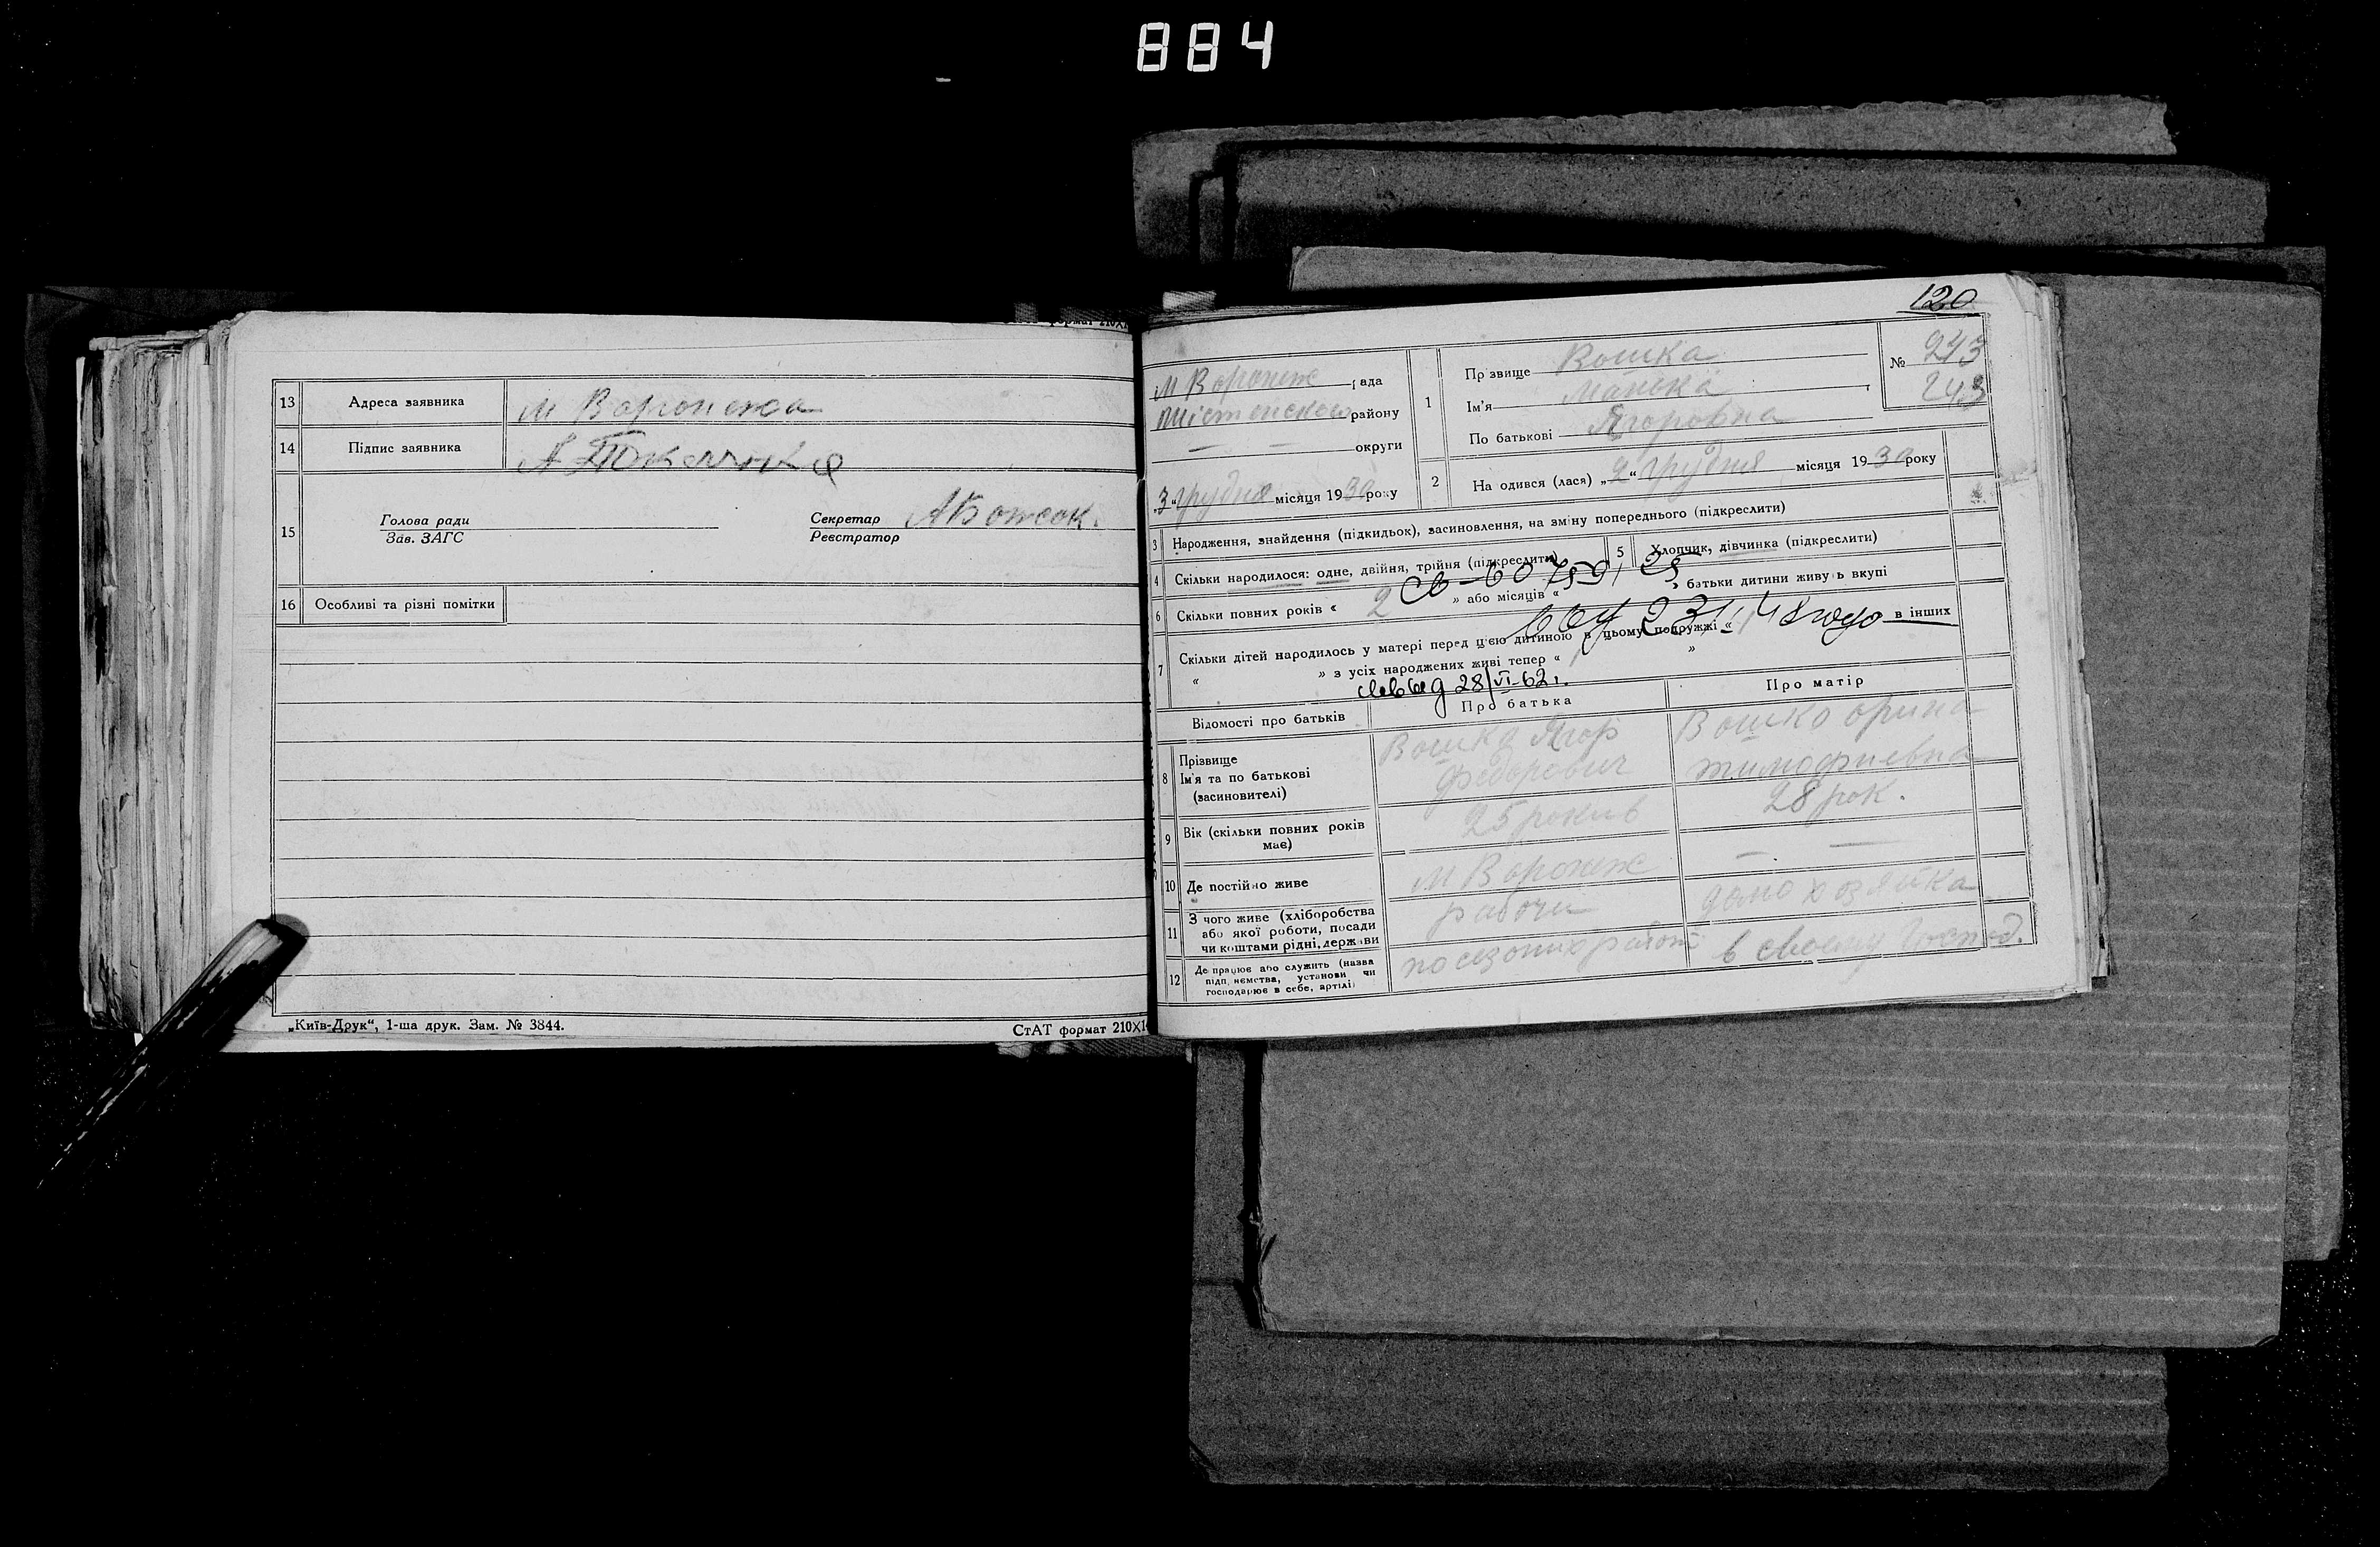 884
формат 210X1
13 Адреса заявника м Воронежа
14 Підпис заявника
15 Голова ради
Зав. ЗАГС
Секретар
Реєстратор
16 Особливі та різні помітки
„Київ-Друк“, 1-ша друк. Зам. № 3844.
СтАТ формат 210X1
120
м Воронеж рада
району
— — округи
„3“ грудня місяця 1930 року
1 Прізвище Вошка
Ім'я Манька
По батькові Ягоровна
№ 243
243
2 На одився (лася) „2“ грудня місяця 1930 року
3 Народження, знайдення (підкидьок), засиновлення, на зміну попереднього (підкреслити)
4 Скільки народилося: одне, двійня, трійня (підкреслити)
5 Хлопчик, дівчинка (підкреслити)
6 Скільки повних років « 2 » або місяців « » батьки дитини живуть вкупі
7 Скільки дітей народилось у матері перед цією дитиною в цьому подружжі « в інших
« » з усіх народжених живі тепер « 1 »
28/VI-62г.
Відомості про батьків
Про батька
Про матір
8 Прізвище
Ім'я та по батькові
(засиновителі)
Вошка Ягор
Федорович
Вошко Орина
тимофиевна
9 Вік (скільки повних років
має)
25 рокив
28 рок.
10 Де постійно живе
м Воронеж
— —
11 З чого живе (хліборобства
або якої роботи, посади
чи коштами рідні, держави
рабочи
домохозяйка
12 Де працює або служить (назва
підприємства, установи чи
господарює в себе, артілі)
по сезоних работ
в своему господ.